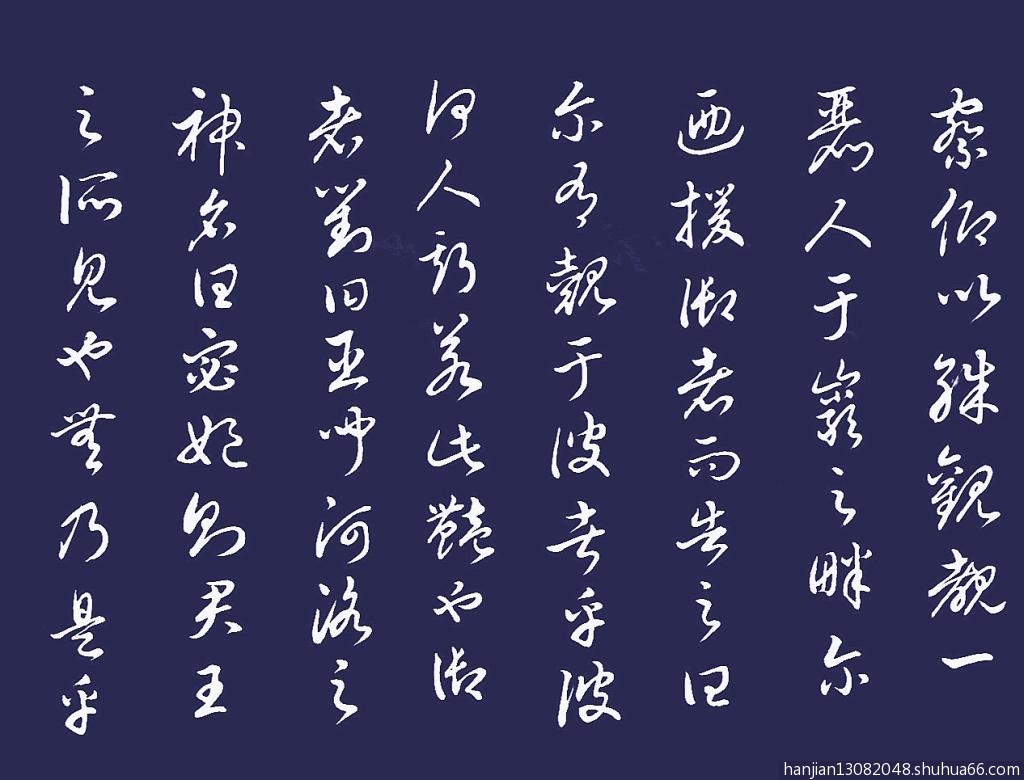 察仰以殊觀覩一
麗人于巖之畔尔
迺援御者而告之曰
尔有覿于彼者乎彼
何人斯若此豔也御
者對曰臣聞河洛之
神名曰宓妃則君王
之所見也無乃是乎
hanjian13082048.shuhua66.com